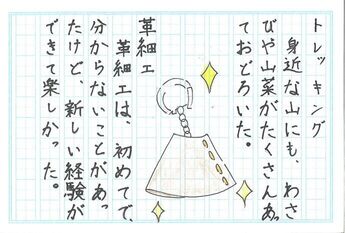 トレッキング
身近な山にも、わさ
びや山菜がたくさんあっ
ておどろいた。
革細工
革細工は、初めてで、
分からないことがあっ
たけど、新しい経験が
できて楽しかった。